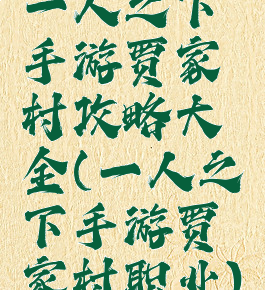 一人之下
手游贾家
村攻略大
全(一人之
下手游贾
家村职业)